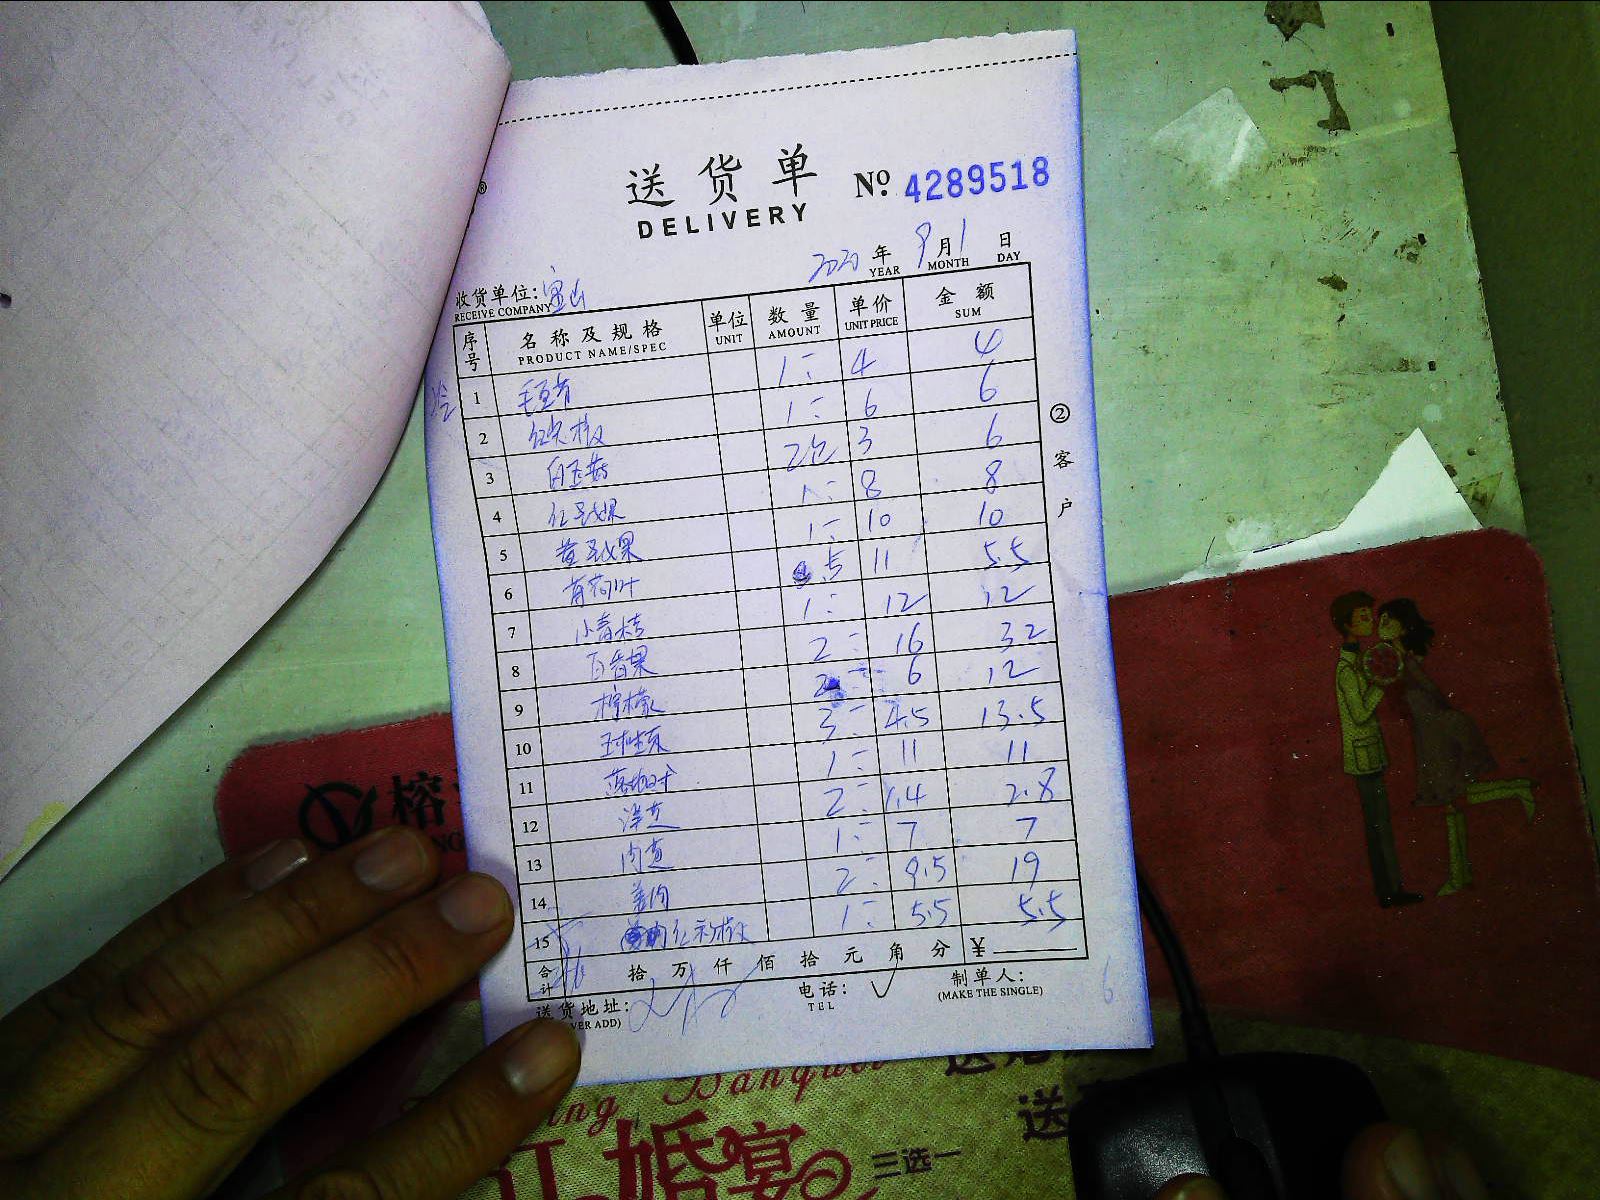 送货单 № 4289518
DELIVERY
2020 年 9 月 1 日
YEAR MONTH DAY
收货单位: 宝山
RECEIVE COMPANY
序号 名称及规格 单位 数量 单价 金额
PRODUCT NAME/SPEC UNIT AMOUNT UNIT PRICE SUM
1 毛豆肉 1 4 4
2 红尖椒 1 6 6
3 白玉菇 2包 3 6
4 红圣女果 1 8 8
5 黄圣女果 1 10 10
6 薄荷叶 .5 11 5.5
7 小青桔 1 12 12
8 百香果 2 16 32
9 柠檬 2 6 12
10 球生菜 3 4.5 13.5
11 1 11 11
12 洋芝 2 1.4 2.8
13 肉 1 7 7
14 姜肉 2 9.5 19
15 红 椒 1 5.5 5.5
合计 拾 万 仟 佰 拾 元 角 分 ¥
送货地址: 电话: 制单人:
VER ADD) TEL (MAKE THE SINGLE)
② 客户
榕
NG
ing Banque
婚宴
三选一
送
送